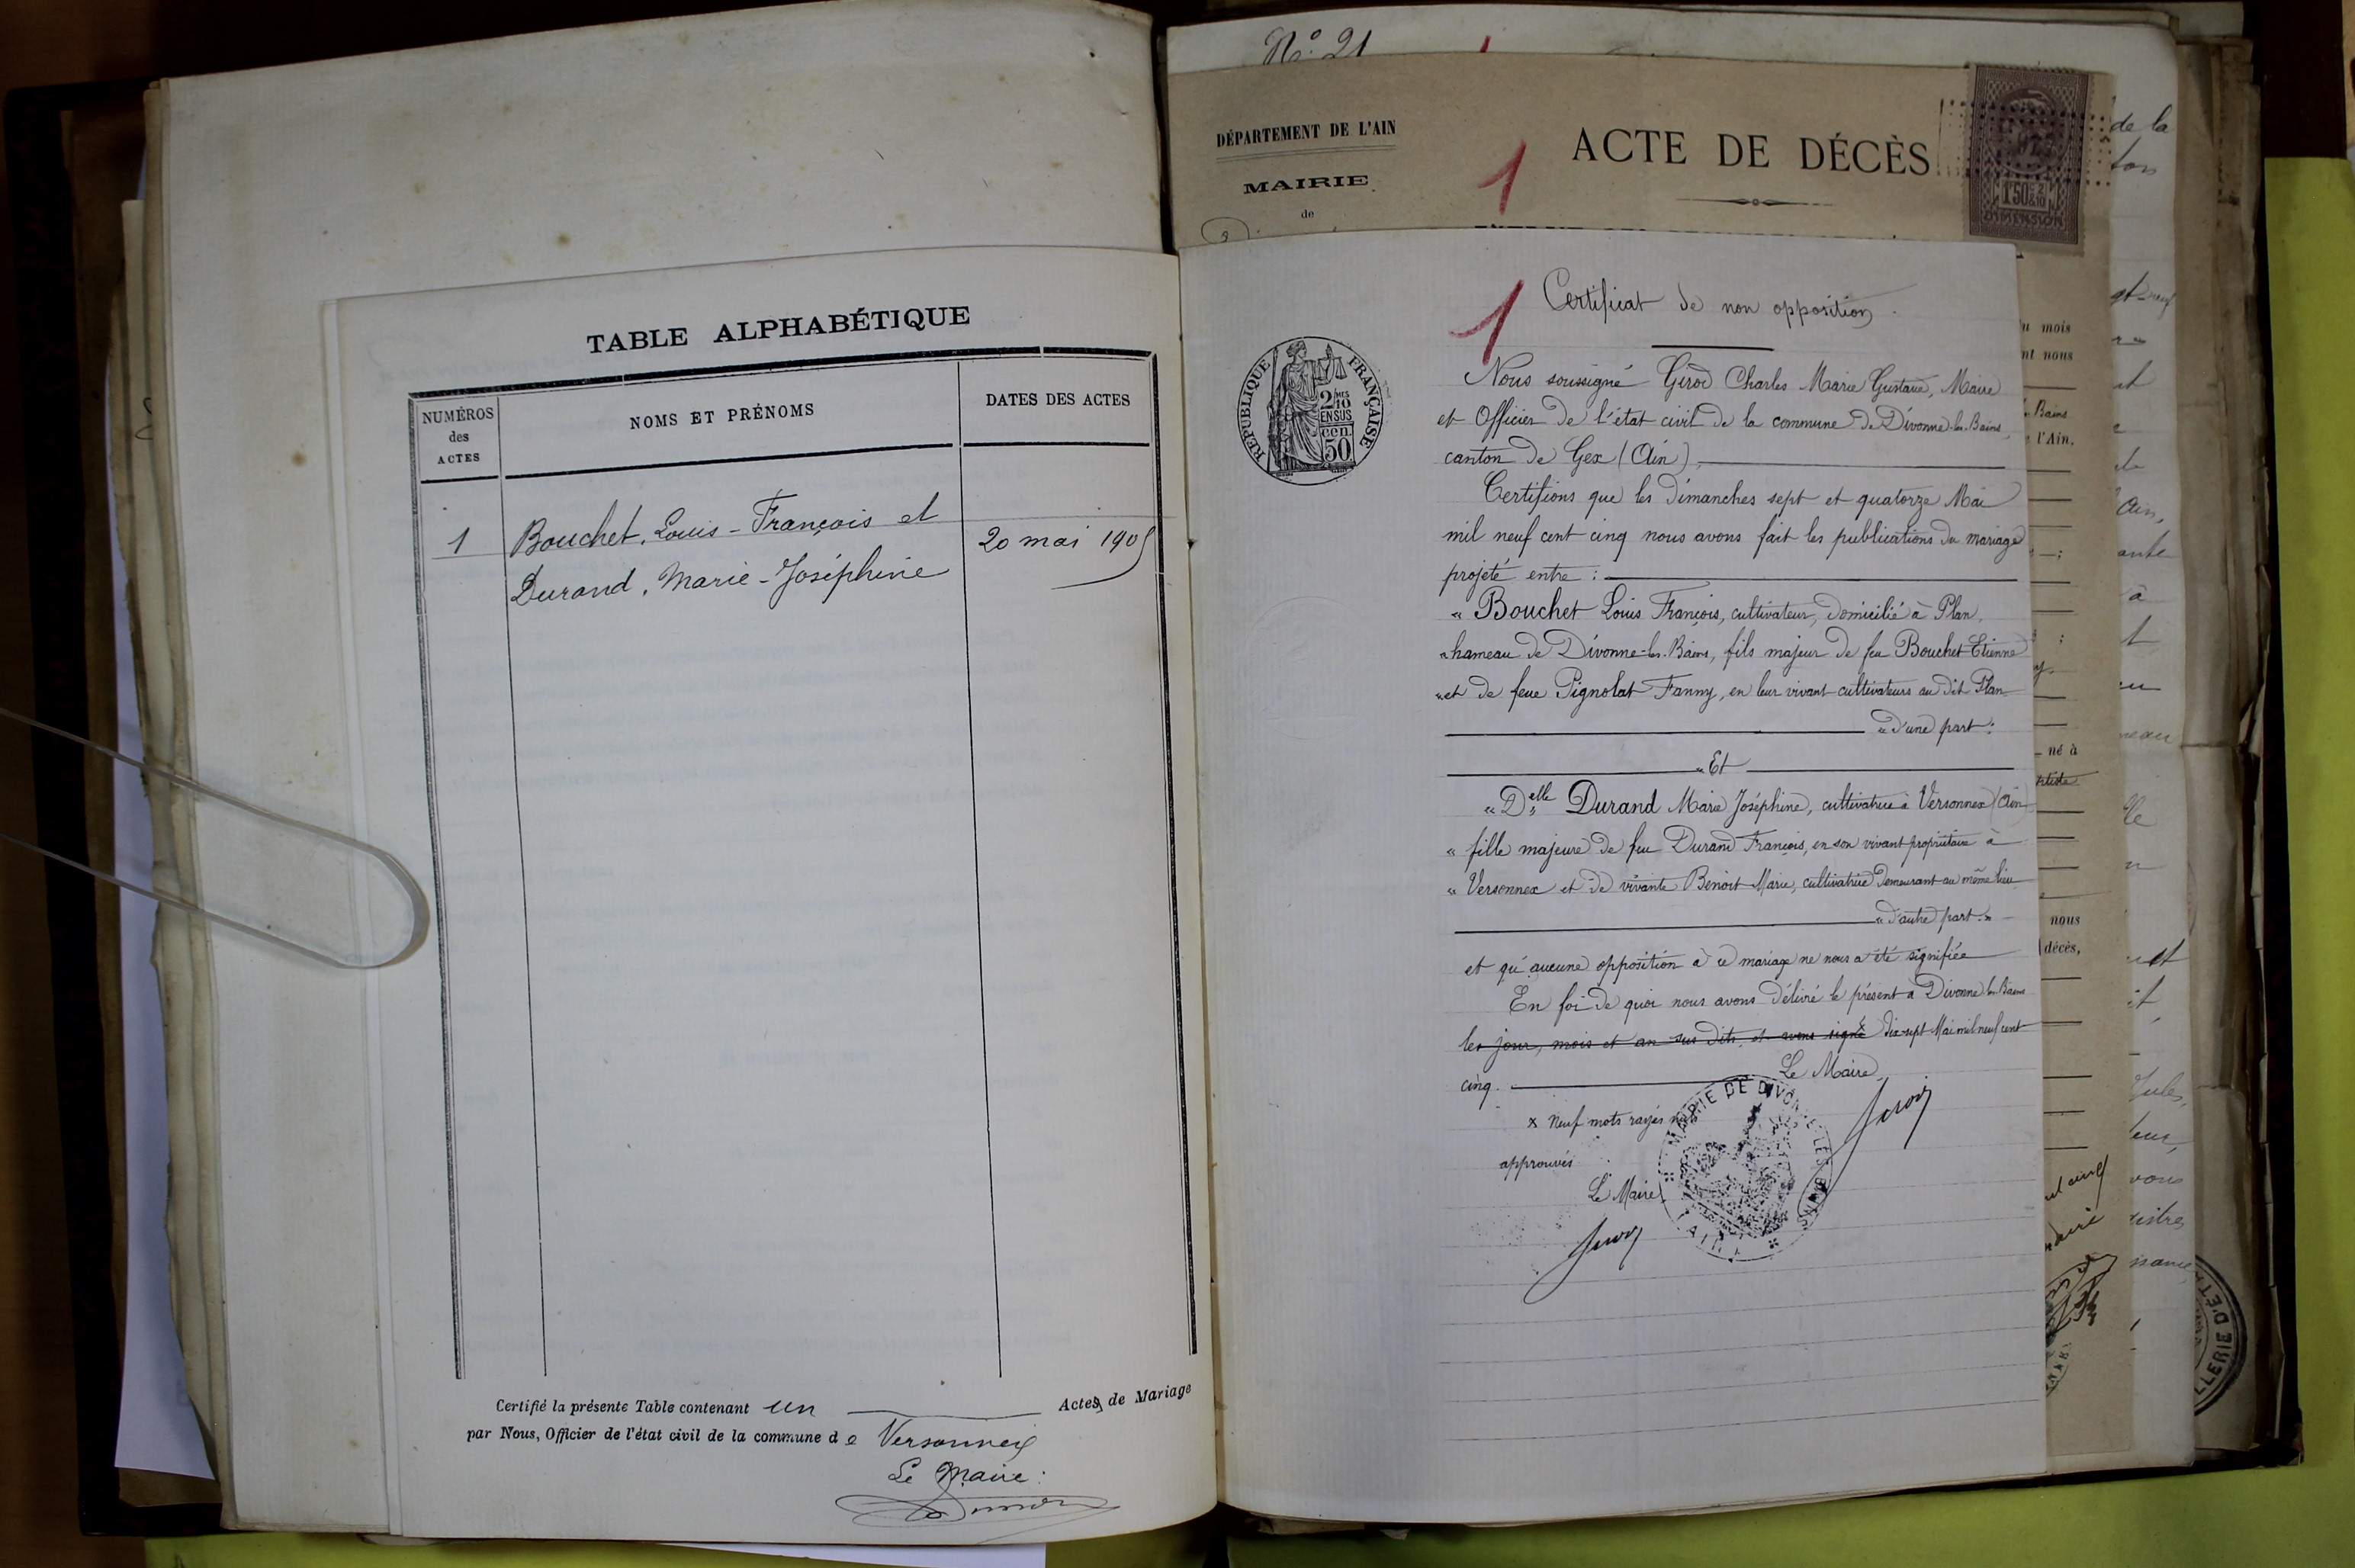 TABLE ALPHABÉTIQUE
NUMÉROS
des
ACTES
NOMS ET PRÉNOMS
DATES DES ACTES
1
Bouchet, Louis-François et
Durand, Marie-Joséphine
20 mai 1905
Certifié la présente Table contenant un Actes de Mariage
par Nous, Officier de l'état civil de la commune de Versonnex
Le Maire:
No. 21
DÉPARTEMENT DE L'AIN
MAIRIE
de
1
ACTE DE DÉCÈS
1'50
DIMENSION
1
Certificat de non opposition
RÉPUBLIQUE FRANÇAISE
2 10
EN SUS
cen.
50
Nous soussigné Girod Charles Marie Gustave, Maire
et Officier de l'état civil de la commune de Divonne-les-Bains
canton de Gex (Ain)
Certifions que les dimanches sept et quatorze Mai
mil neuf cent cinq nous avons fait les publications du mariage
projeté entre :
« Bouchet Louis François, cultivateur, domicilié à Plan,
« hameau de Divonne-les-Bains, fils majeur de feu Bouchet Etienne
« et de feue Pignolat Fanny, en leur vivant cultivateurs au dit Plan
« d'une part :
« Et
« Delle Durand Marie Joséphine, cultivatrice à Versonnex (Ain
« fille majeure de feu Durand François, en son vivant propriétaire à
« Versonnex et de vivante Benoit Marie, cultivatrice demeurant au même lieu
« d'autre part. »
et qu'aucune opposition à ce mariage ne nous a été signifiée
En foi de quoi nous avons délivré le présent à Divonne-les-Bains
les jour, mois et an sus dits, et avons signé x dix-sept Mai mil neuf cent
cinq.
Le Maire,
x Neuf mots rayés
approuvés
Le Maire
MAIRIE DE DIVONNE LES BAINS
(AIN)
de la
u mois
nt nous
Bains
l'Ain.
Ain,
ante
à
né à
nous
décès,
Jules,
vous
LLERIE D'ÉT